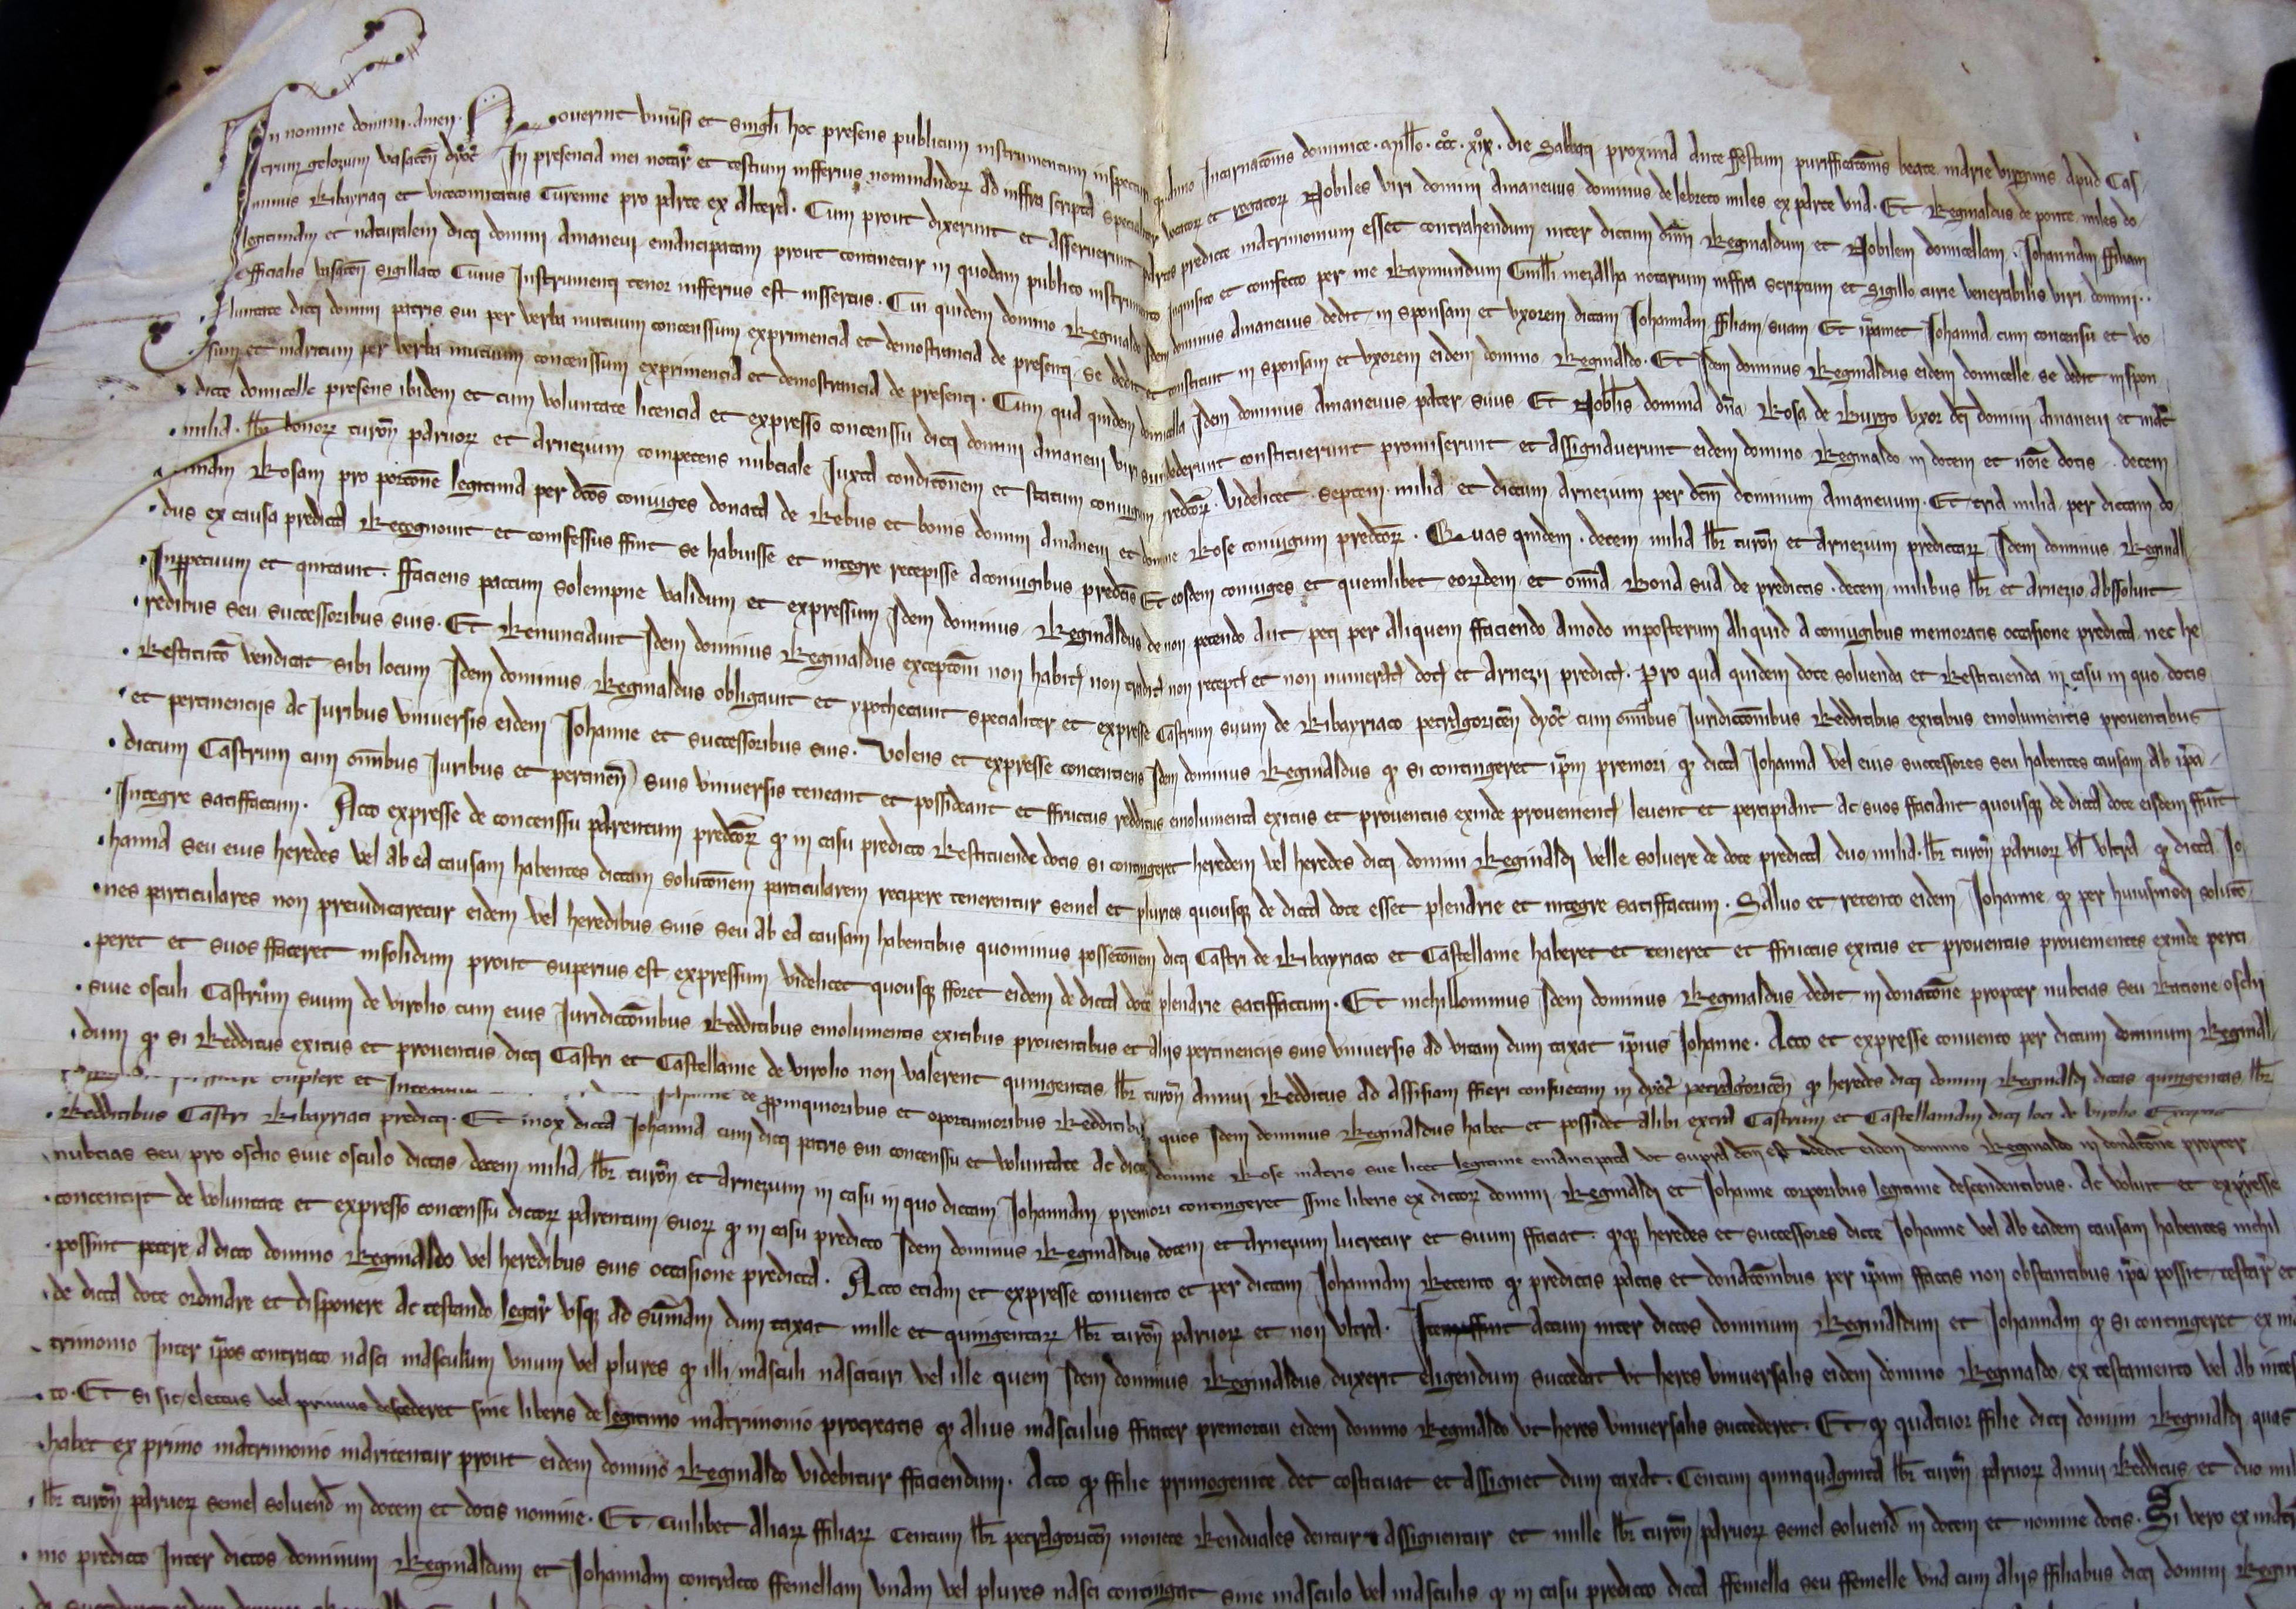 In nomine domini amen. Noverint universi et singuli hoc presens publicum instrumentum inspecturi quod anno Incarnationis dominice mill͞o. ccc͞o. xix͞o. die Sabbati proxima ante ffestum purifficationis beate marie virginis apud Cas-
trum gelozum vasaten̄ dyoc̄ In presencia mei notarii et testium infferius nominandorꝝ ad inffra scripta specialiter vocatorꝝ et rogatorꝝ Nobiles viri domini Amaneuus dominus de lebreto miles ex parte una. Et Reginaldus de ponte miles do-
minus Ribayriaci et vicecomitatus Turenne pro parte ex altera. Cum prout dixerunt et asseruerunt partes predicte matrimonium esset contrahendum inter dictum dn̄m Reginaldum et Nobilem domicellam Iohannam ffiliam
legitimam et naturalem dicti domini Amaneui emancipatam prout continetur in quodam publico instrumento inquisito et confecto per me Raymundum Guill̄i mezalha notarium inffra scriptum et sigillo curie venerabilis viri domini..
officialis vasaten̄ sigillato Cuius Instrumenti tenor infferius est inssertus. Cui quidem domino Reginaldo Idem dominus Amaneuus dedit in sponsam et uxorem dictam Iohannam ffiliam suam Et ip̄amet Iohanna cum concensu et vo
luntate dicti domini patris sui per verba mutuum concenssum exprimencia et demostrancia de presenti se dedit et constituit in sponsam et uxorem eidem domino Reginaldo. Et Idem dominus Reginaldus eidem domicelle se dedit in spon
sum et maritum per verba mutuum concenssum exprimencia et demostrancia de presenti. Cum qua quidem domicella Idem dominus Amaneuus pater suus Et Nobilis domina dn̄a Rosa de Burgo uxor dc̄i domini Amaneui et mat̄
dicte domicelle presens ibidem et cum voluntate licencia et expresso concenssu dicti domini Amaneui viri sui dederunt constituerunt promiserunt et assignauerunt eidem domino Reginaldo in dotem et no͞ie dotis decem
milia. lb̄r bonorꝝ turon̄ paruorꝝ et arnezium competens nubciale Iuxta condicionem et statum coniugum predc̄orꝝ. Videlicet septem milia et dictum arnezium per dc̄m dominum Amaneuum. Et tria milia per dictam do-
minam Rosam pro porcione legitima per dc̄os coniuges donata de Rebus et bonis domini Amaneui et domine Rose coniugum predc̄orꝝ. Quas quidem. decem milia lb̄r turon̄ et arnezium predictarꝝ Idem dominus Reginal
dus ex causa predicta Recognouit et confessus ffuit se habuisse et integre recepisse a coniugibus predc̄is Et eosdem coniuges et quemlibet eorꝝdem et omnia Bona sua de predictis. decem milibus lb̄r et arnezio absoluit
Inperpetuum et quitauit. Ffaciens pactum solempne validum et expressum Idem dominus Reginaldus de non petendo aut peti per aliquem ffaciendo amodo inposterum aliquid a coniugibus memoratis occasione predicta nec he
redibus seu successoribus suis. Et Renunciauit Idem dominus Reginaldus exceptioni non habite non tradite non recepte et non numerate dotis et arnezii predicti. Pro qua quidem dote soluenda et Restituenda in casu in quo dotis
Restitutio vendicat sibi locum Idem dominus Reginaldus obligauit et ypothecauit specialiter et expresse Castrum suum de Ribayriaco petragoricen̄ dyoc̄ cum omnibus Iuridictionibus Redditibus exitibus emolumentis prouentibus
et pertinenciis ac Iuribus uniuersis eidem Iohanne et successoribus suis. Volens et expresse concentiens Idem dominus Reginaldus ꝙ si contingeret ip̄m premori ꝙ dicta Iohanna vel eius successores seu habentes causam ab ip̄a
dictum Castrum cum omnibus Iuribus et pertinen̄ suis uniuersis teneant et possideant et ffructus redditus emolumenta exitus et prouentus exinde prouenientes leuent et percipiant ac suos ffaciant quousque de dicta dote eisdem ffuerit
Integre satisffactum. Acto expresse de concenssu parentum predc̄orꝝ ꝙ in casu predicto Restituende dotis si contingeret heredem vel heredes dicti domini Reginaldi velle soluere de dote predicta duo milia. lb̄r turon̄ paruorꝝ vl̄ ultra ꝙ dicta Io
hanna seu eius heredes vel ab ea causam habentes dictam solutionem particularem recipere tenerentur semel et pluries quousque de dicta dote esset plenarie et integre satisffactum. Saluo et retento eidem Iohanne ꝙ per huiusmodi solutio-
nes particulares non preiudicaretur eidem vel heredibus suis seu ab ea causam habentibus quominus possessionem dicti Castri de Ribayriaco et Castellanie haberet et teneret et ffructus exitus et prouentus prouenientes exinde perci
peret et suos ffaceret insolidum prout superius est expressum videlicet quousque fforet eidem de dicta dote plenarie satisffactum. Et nichillominus Idem dominus Reginaldus dedit in donatione propter nubcias seu Racione osclii
siue osculi Castrum suum de virolio cum eius Iuridictionibus Redditibus emolumentis exitibus prouentibus et aliis pertinenciis suis uniuersis ad vitam dum taxat ip̄ius Iohanne. Acto et expresse conuento per dictum dominum Reginal
dum ꝙ si Redditus exitus et prouentus dicti Castri et Castellanie de virolio non valerent quingentas lb̄r turon̄ annui Redditus ad assisiam ffieri consuetam in dyoc̄ petragoricen̄ ꝙ heredes dicti domini Reginaldi dictas quingentas lb̄r
supplere et Iohanne de propinquioribus et oportunioribus Redditibus quos Idem dominus Reginaldus habet et possidet alibi extra Castrum et Castellaniam dicti loci de virolio Exceptis
Redditibus Castri Ribayriaci predicti. Et mox dicta Iohanna cum dicti patris sui concenssu et voluntate ac dicte domine Rose matris sue licet legitime emancipata ut supra dc̄m est dedit eidem domino Reginaldo in donatione propter
nubcias seu pro osclio siue osculo dictas decem milia lb̄r turon̄ et arnezium in casu in quo dictam Iohannam premori contingeret ssine liberis ex dictorꝝ domini Reginaldi et Iohanne corporibus legitime descendentibus. Ac voluit et expresse
concenciit de voluntate et expresso concenssu dictorꝝ parentum suorꝝ ꝙ in casu predicto Idem dominus Reginaldus dotem et arnezium lucretur et suum ffaciat. ꝙque heredes et successores dicte Iohanne vel ab eadem causam habentes nichil
possint petere a dicto domino Reginaldo vel heredibus suis occasione predicta. Acto etiam et expresse conuento et per dictam Iohannam Retento ꝙ predictis pactis et donationibus per ip̄am ffactis non obstantibus ip̄a possit testari et
de dicta dote ordinare et disponere ac testando legare usque ad summam dum taxat mille et quingentarꝝ lb̄r turon̄ paruorꝝ et non ultra. Item ffuit actum inter dictos dominum Reginaldum et Iohannam ꝙ si contingeret ex ma
trimonio Inter ip̄os contracto nasci masculum unum vel plures ꝙ illi masculi nascituri vel ille quem Idem dominus Reginaldus duxerit eligendum succedat ut heres uniuersalis eidem domino Reginaldo ex testamento vel ab intes
to. Et si sic electus vel primus descederet sine liberis de legitimo matrimonio procreatis ꝙ alius masculus ffrater premortui eidem domino Reginaldo ut heres uniuersalis succederet. Et ꝙ quatuor ffilie dicti domini Reginaldi quas
habet ex primo matrimonio maritentur prout eidem domino Reginaldo videbitur ffaciendum. Acto ꝙ ffilie primogenite det costituat et assignet dum taxat. Centum quinquaginta lb̄r turon̄ paruorꝝ annui Redditus et duo mil
lb̄r turon̄ paruorꝝ semel soluend̄ in dotem et dotis nomine. Et cuilibet aliarꝝ ffiliarꝝ Centum lb̄r petragoricen̄ monete Renduales dentur assignentur et mille lb̄r turon̄ paruorꝝ semel soluend̄ in dotem et nomine dotis. Si vero ex matri
nio predicto Inter dictos dominum Reginaldum et Iohannam contracto ffemellam unam vel plures nasci contingat sine masculo vel masculis ꝙ in casu predicto dicta ffemella seu ffemelle una cum aliis ffiliabus dicti domini Regin